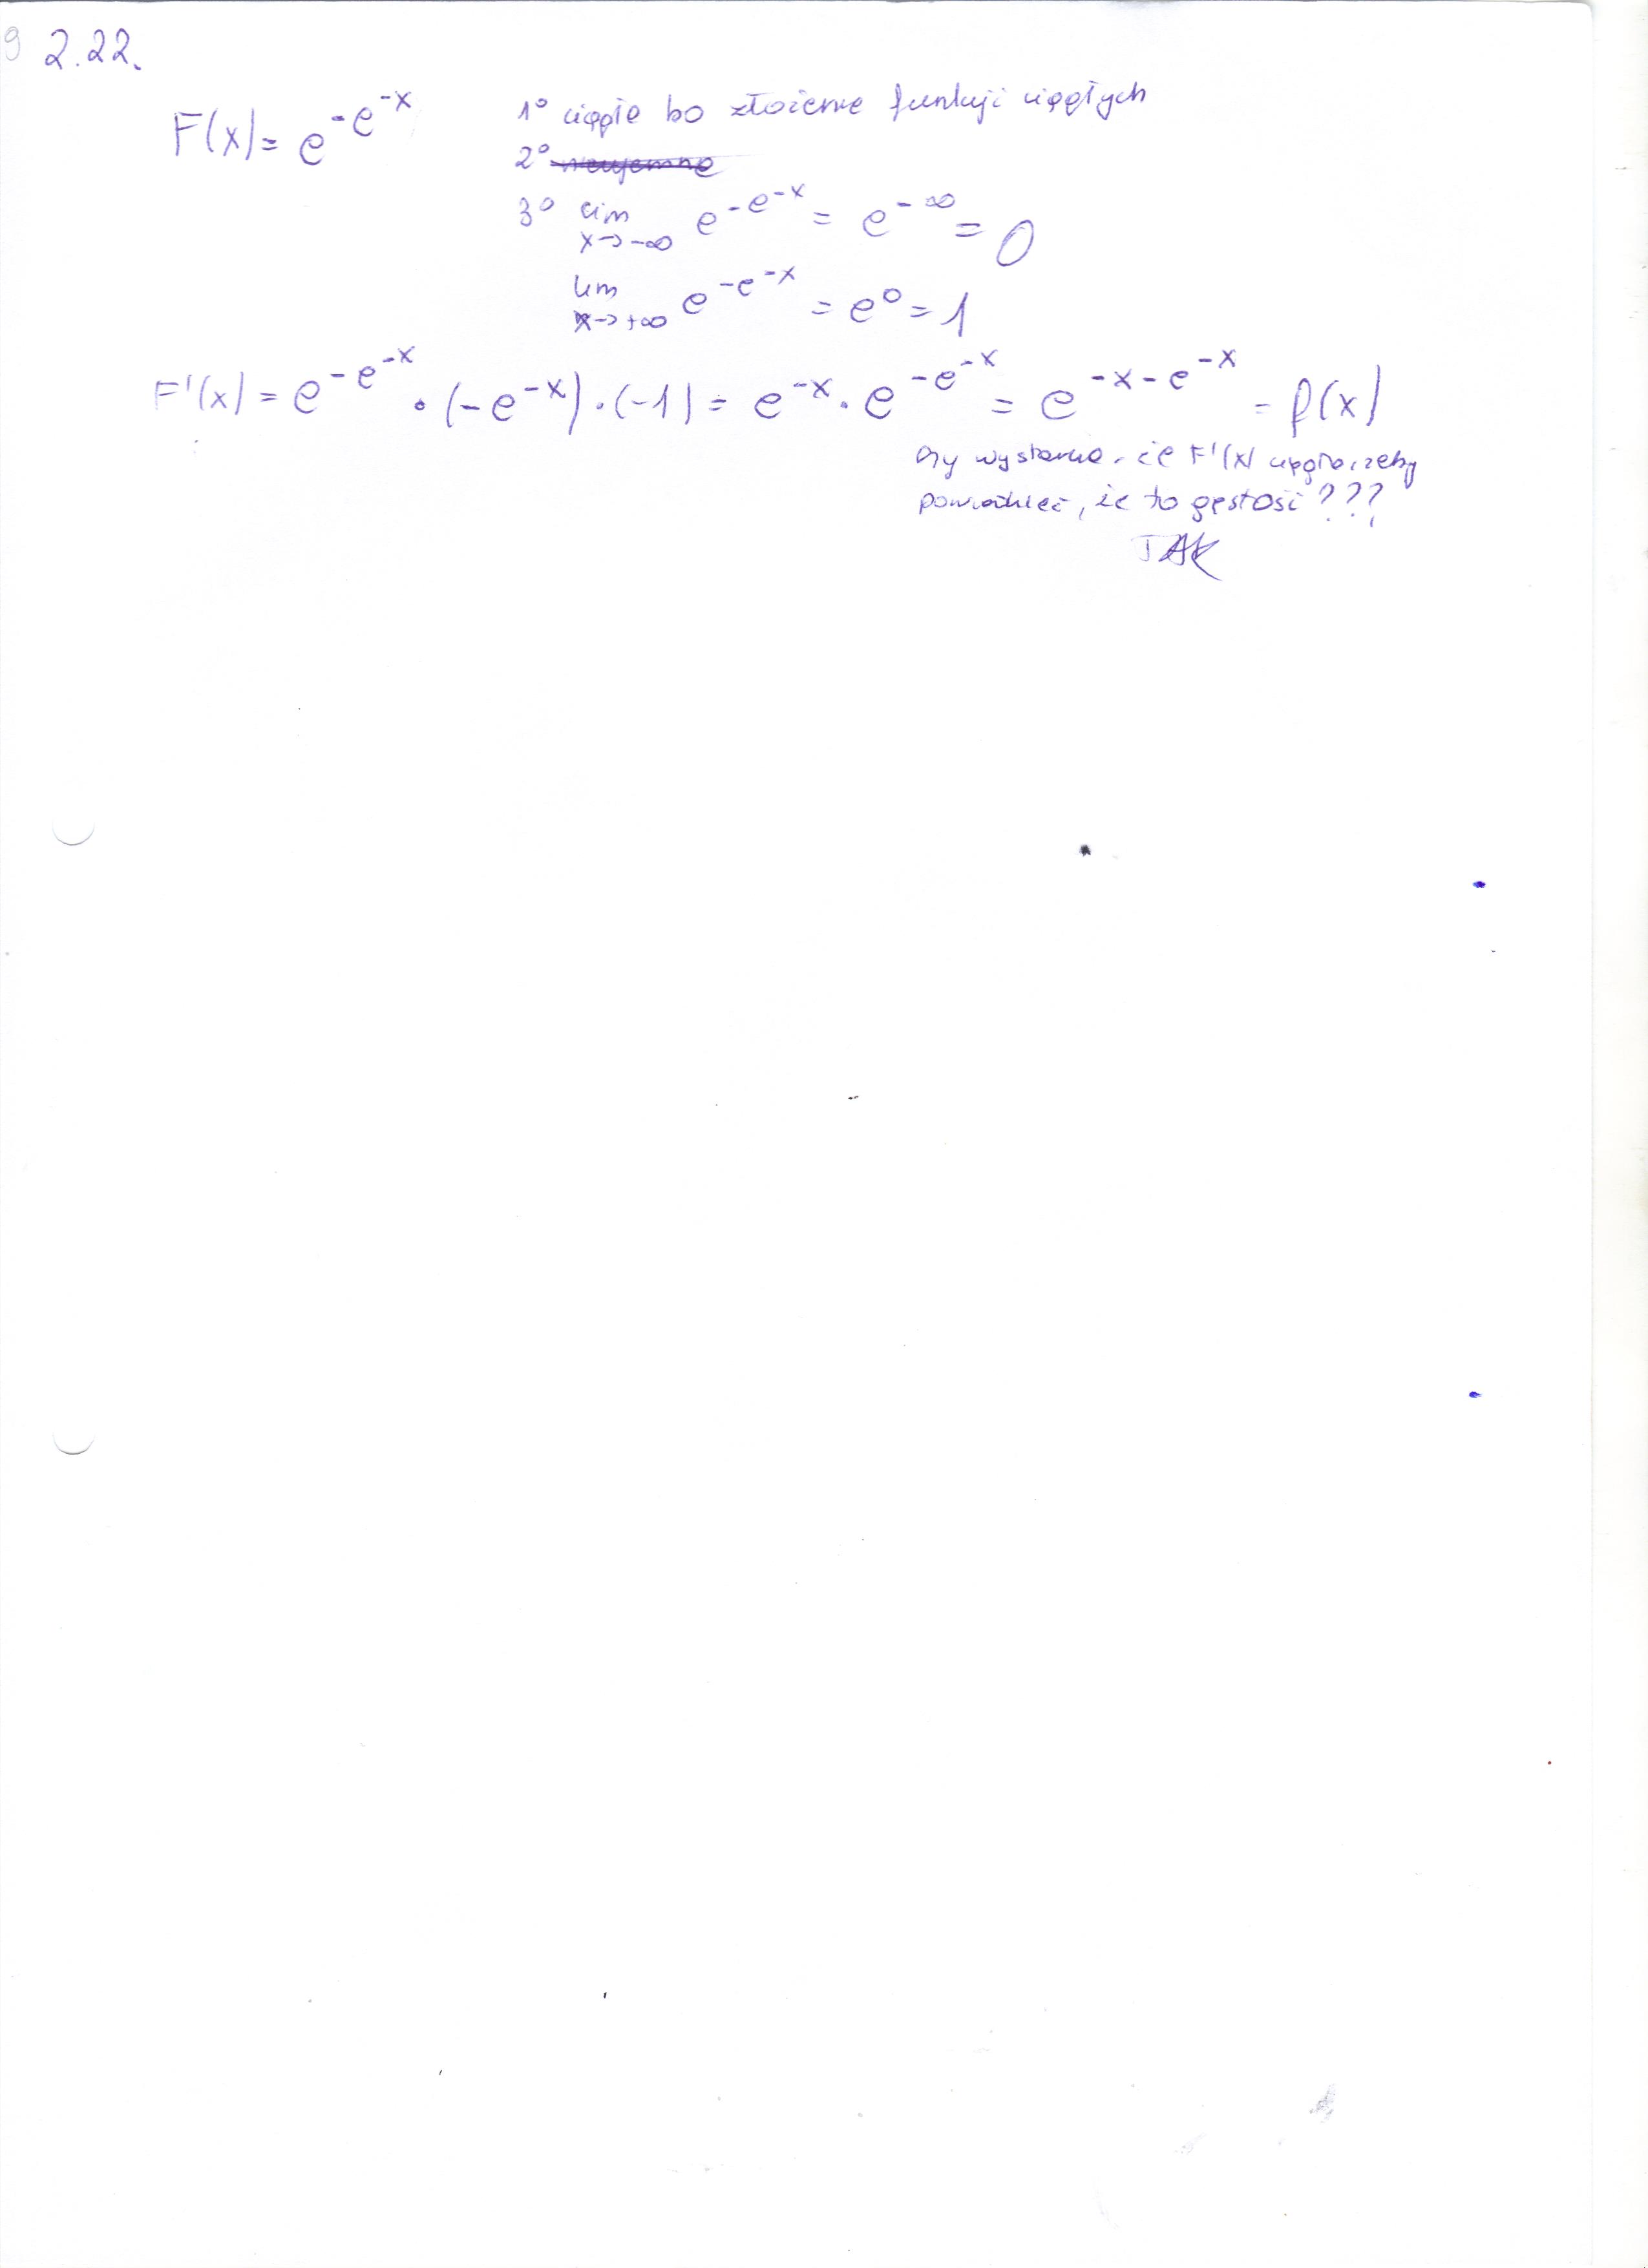 9 2.22.
F(x) = e^{-e^{-x}} 1° ciągłe bo złożenie funkcji ciągłych
2°
3° lim_{x→-∞} e^{-e^{-x}} = e^{-∞} = 0
lim_{x→+∞} e^{-e^{-x}} = e^0 = 1
F'(x) = e^{-e^{-x}} · (-e^{-x}) · (-1) = e^{-x} · e^{-e^{-x}} = e^{-x-e^{-x}} = f(x)
czy wystarcza, że F'(x) ciągła, żeby
powiedzieć, że to gęstość???
TAK